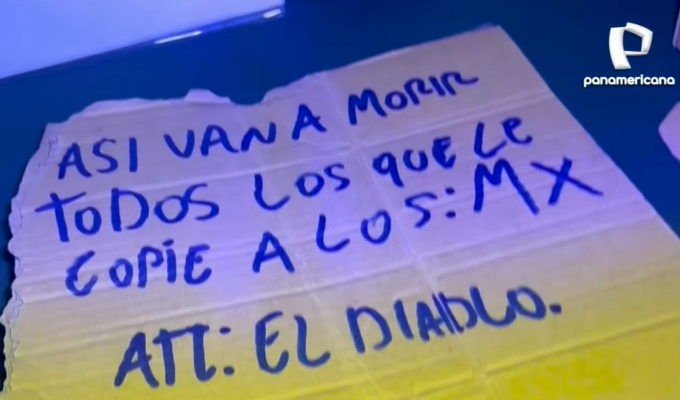 panamericana
ASI VAN A MORIR
TODOS LOS QUE LE
COPIE A LOS: MX
ATT: EL DIABLO.